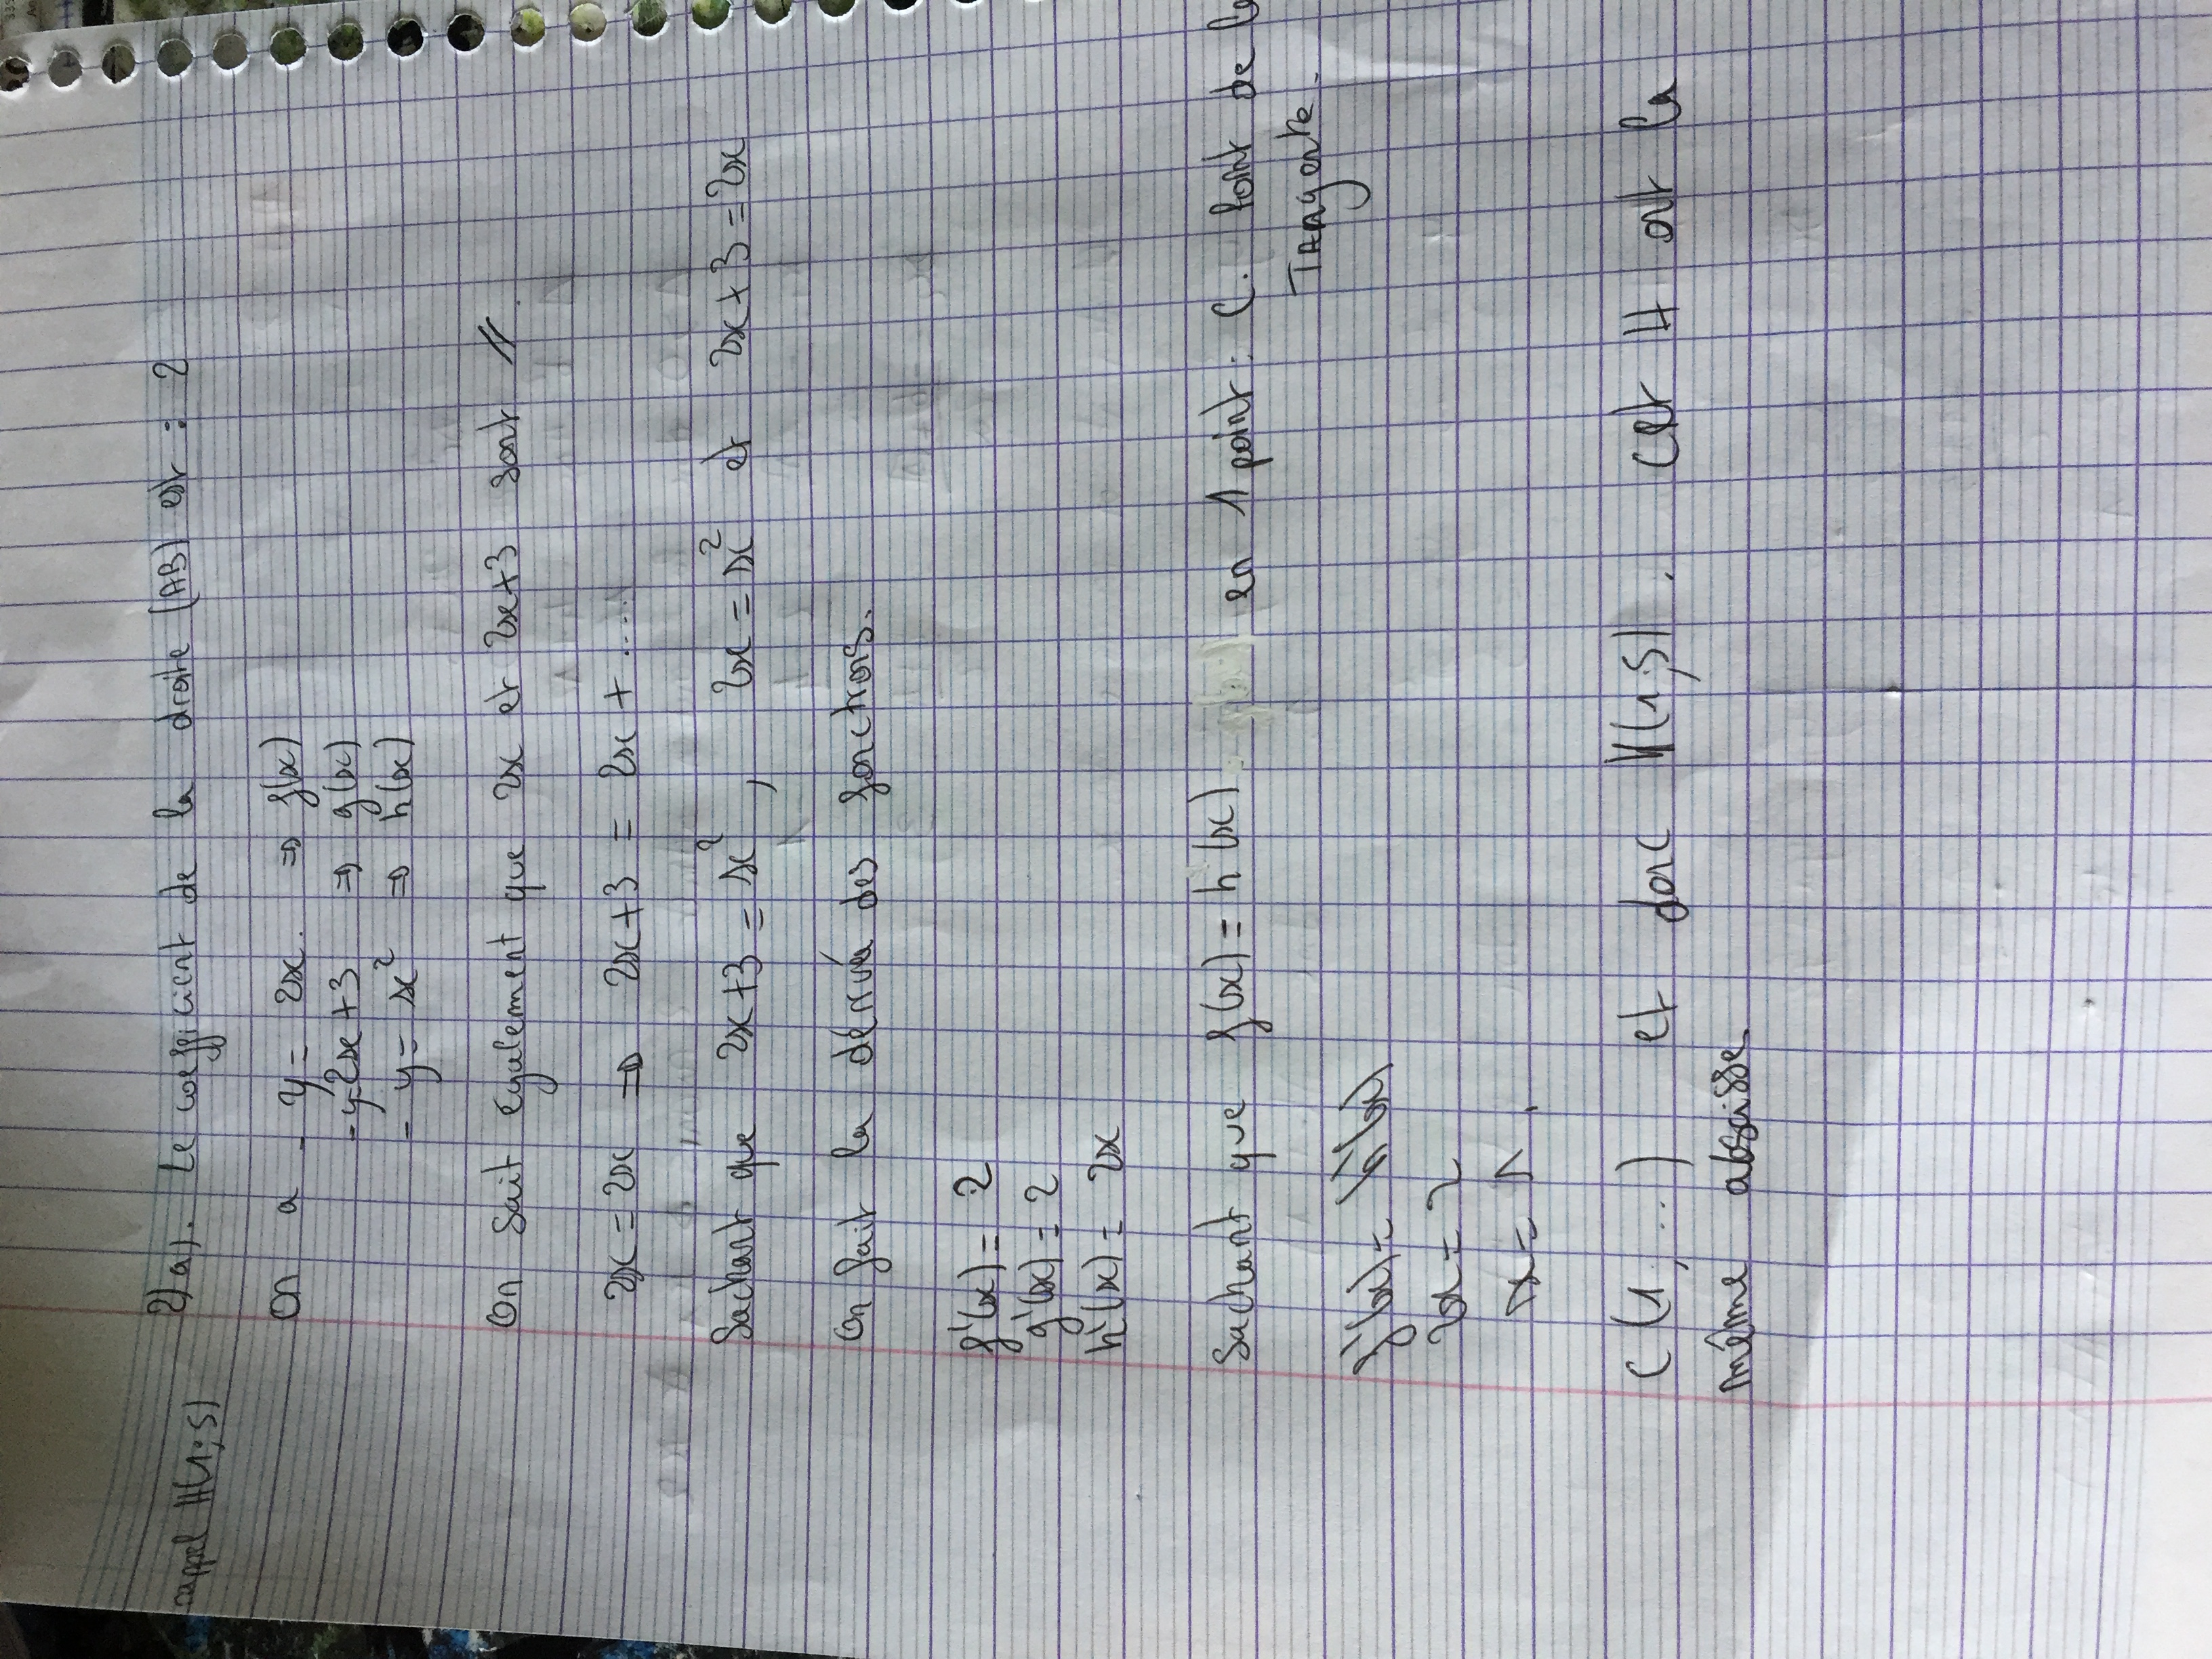 rappel H(1;5)
2) a). Le coefficient de la droite (AB) est : 2
On a - y = 2x. => f(x)
- y=2x+3 => g(x)
- y = x² => h(x)
On sait également que 2x et 2x+3 sont //.
2x = 2x => 2x+3 = 2x + ....
Sachant que 2x+3 = x² , 2x = x² et 2x+3 = 2x
On fait la dérivée des fonctions.
f'(x) = 2
g'(x) = 2
h'(x) = 2x
Sachant que f(x) = h(x) en 1 point : C. Point de la
TAngente.
f'(x) = h'(x)
2x = 2
x = 1.
C(1; ...) et donc H(1;5). C et H ont la
même abscisse